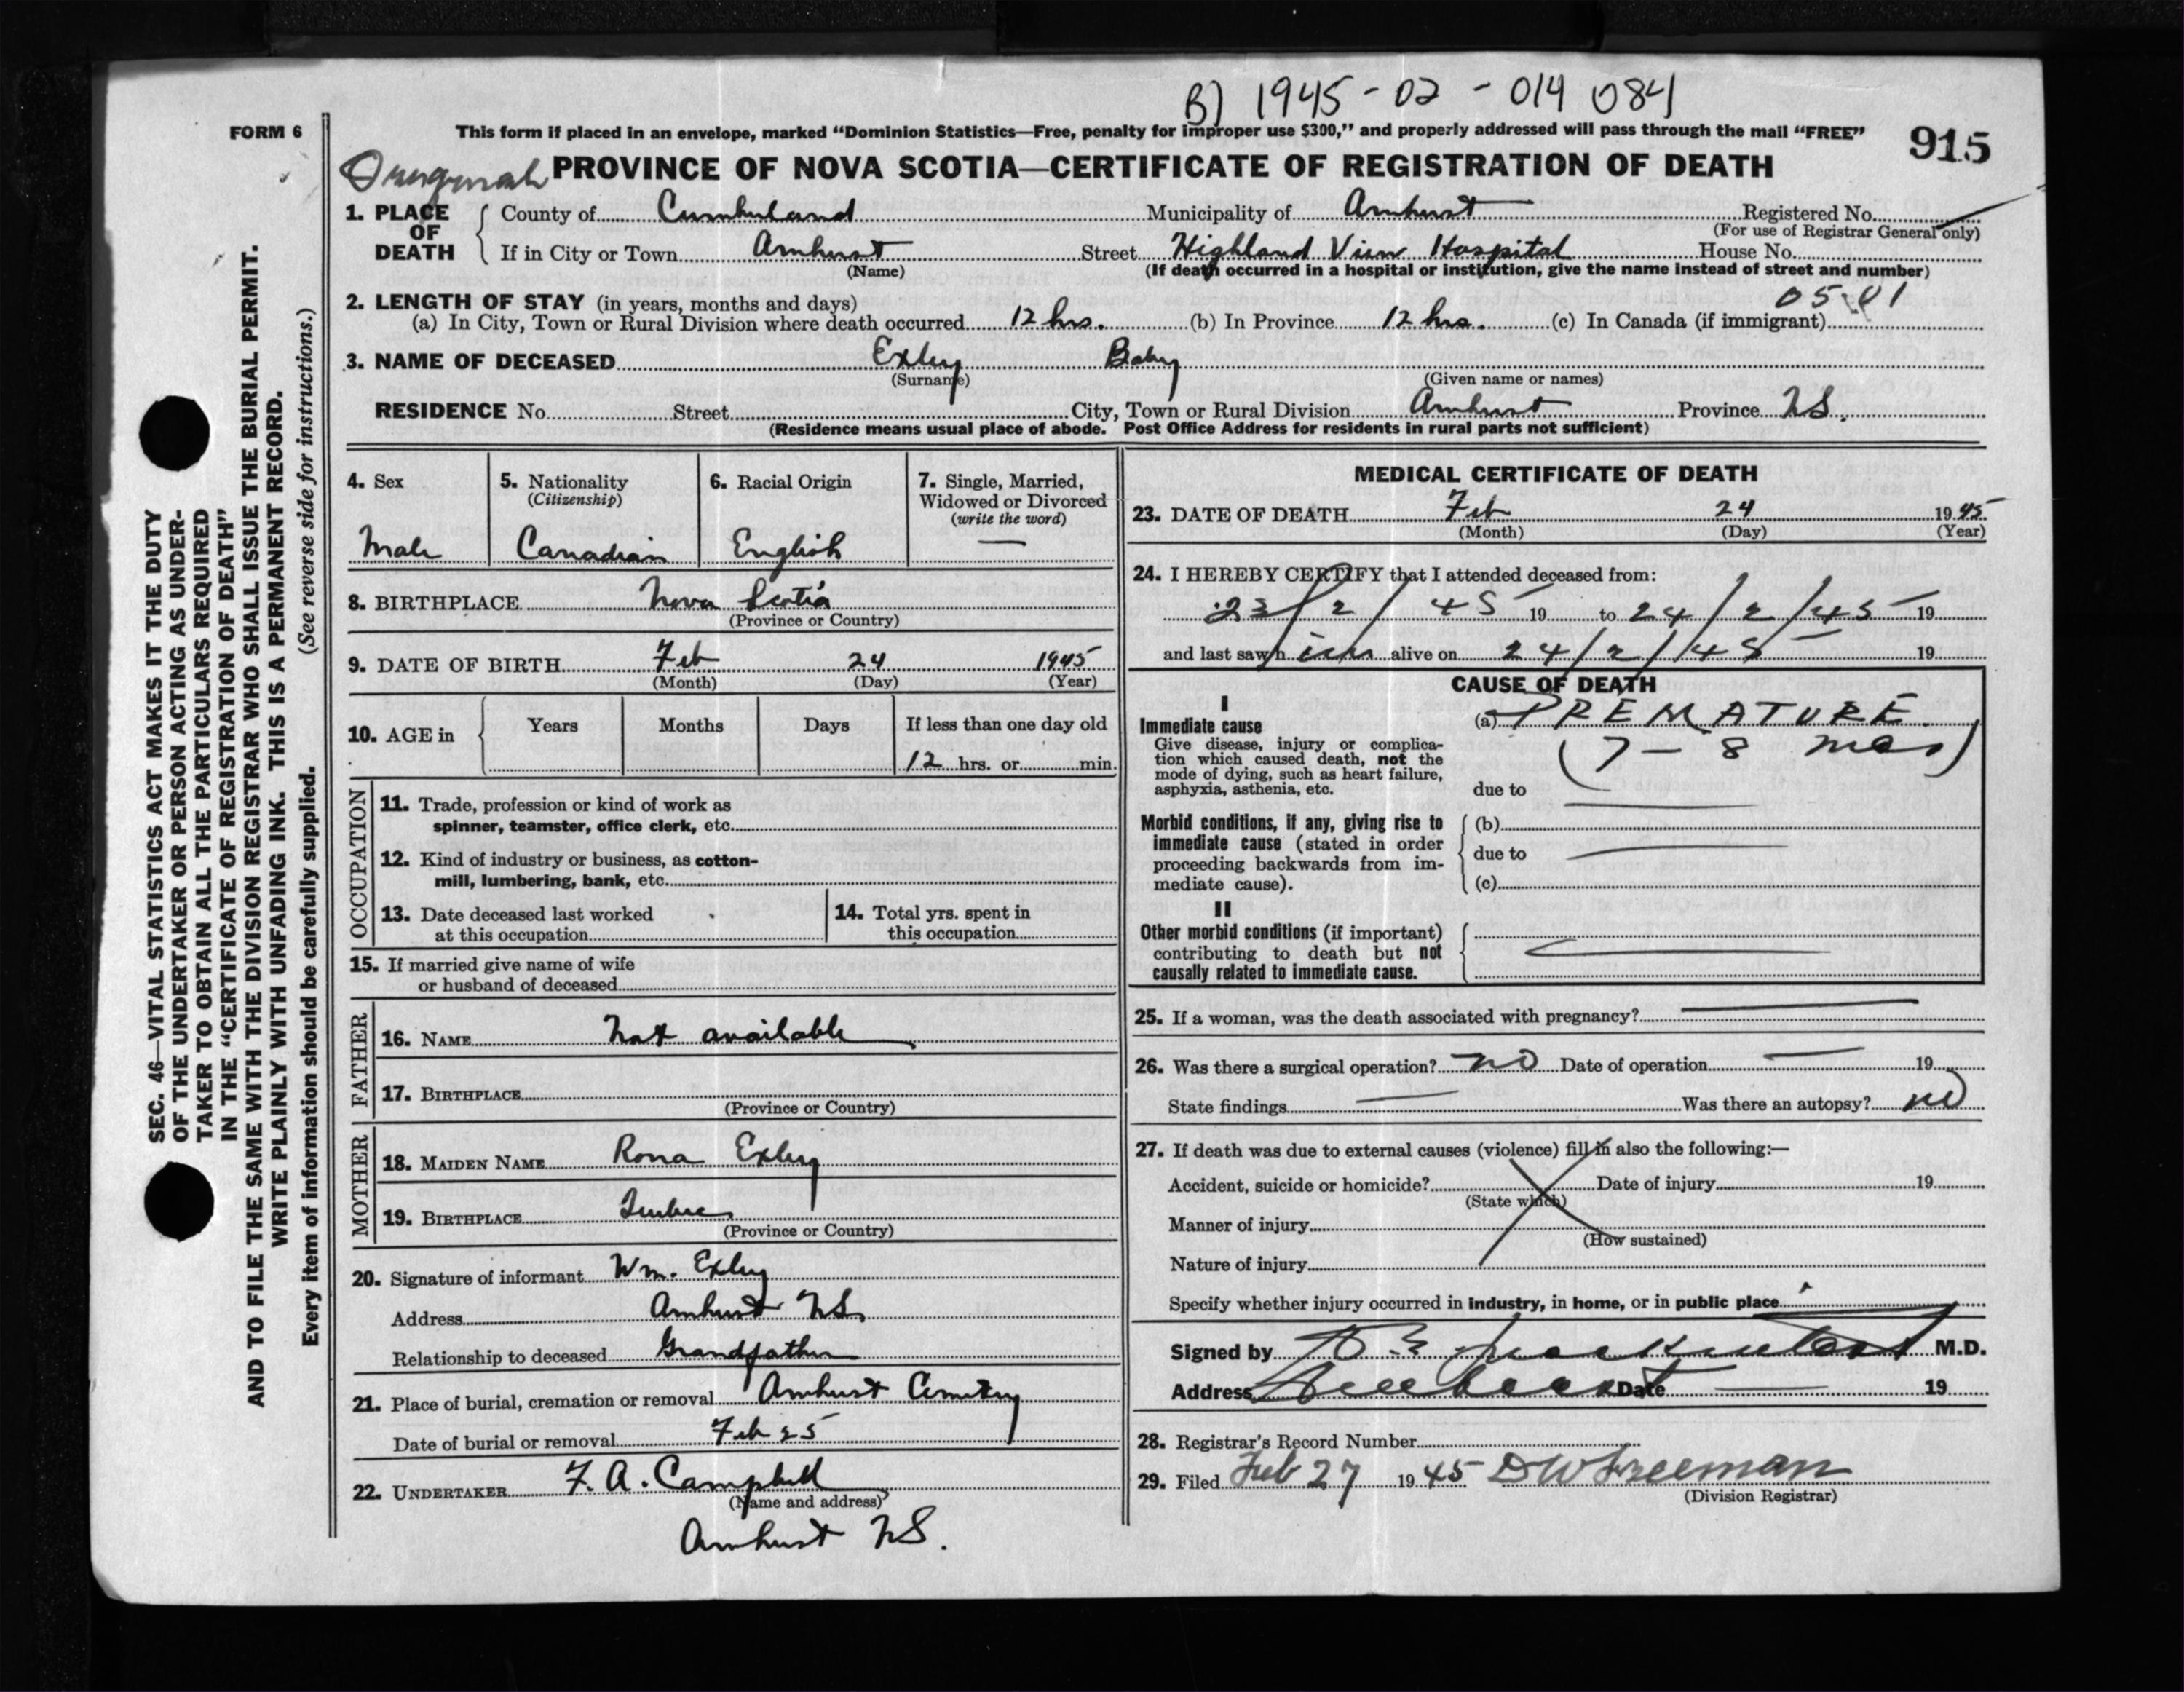 B) 1945-02-014 084
FORM 6
This form if placed in an envelope, marked "Dominion Statistics—Free, penalty for improper use $300," and properly addressed will pass through the mail "FREE"
915
PROVINCE OF NOVA SCOTIA—CERTIFICATE OF REGISTRATION OF DEATH
1. PLACE OF DEATH
County of Cumberland Municipality of Amherst Registered No.
(For use of Registrar General only)
If in City or Town Amherst Street Highland View Hospital House No.
(Name) (If death occurred in a hospital or institution, give the name instead of street and number)
05 01
2. LENGTH OF STAY (in years, months and days)
(a) In City, Town or Rural Division where death occurred 12 hrs. (b) In Province 12 hrs. (c) In Canada (if immigrant)
3. NAME OF DECEASED Exley Baby
(Surname) (Given name or names)
RESIDENCE No. Street City, Town or Rural Division Amherst Province N.S.
(Residence means usual place of abode. Post Office Address for residents in rural parts not sufficient)
4. Sex
Male
5. Nationality
(Citizenship)
Canadian
6. Racial Origin
English
7. Single, Married,
Widowed or Divorced
(write the word)
—
8. BIRTHPLACE Nova Scotia
(Province or Country)
9. DATE OF BIRTH Feb 24 1945
(Month) (Day) (Year)
10. AGE in Years Months Days If less than one day old
12 hrs. or min.
OCCUPATION
11. Trade, profession or kind of work as
spinner, teamster, office clerk, etc.
12. Kind of industry or business, as cotton-
mill, lumbering, bank, etc.
13. Date deceased last worked
at this occupation
14. Total yrs. spent in
this occupation
15. If married give name of wife
or husband of deceased
FATHER
16. NAME Not available
17. BIRTHPLACE
(Province or Country)
MOTHER
18. MAIDEN NAME Rona Exley
19. BIRTHPLACE
(Province or Country)
20. Signature of informant Wm. Exley
Address Amherst N.S.
Relationship to deceased Grandfather
21. Place of burial, cremation or removal Amherst Cemetery
Date of burial or removal Feb 25
22. UNDERTAKER F. A. Campbell
(Name and address)
Amherst N.S.
MEDICAL CERTIFICATE OF DEATH
23. DATE OF DEATH Feb 24 1945
(Month) (Day) (Year)
24. I HEREBY CERTIFY that I attended deceased from:
23/2/45 19 to 24/2/45 19
and last saw him alive on 24/2/45 19
CAUSE OF DEATH
I
Immediate cause
Give disease, injury or complica-
tion which caused death, not the
mode of dying, such as heart failure,
asphyxia, asthenia, etc.
(a) PREMATURE.
(7-8 mos)
due to
Morbid conditions, if any, giving rise to
immediate cause (stated in order
proceeding backwards from im-
mediate cause).
(b)
due to
(c)
II
Other morbid conditions (if important)
contributing to death but not
causally related to immediate cause.
25. If a woman, was the death associated with pregnancy?
26. Was there a surgical operation? no Date of operation 19
State findings Was there an autopsy? no
27. If death was due to external causes (violence) fill in also the following:—
Accident, suicide or homicide? Date of injury 19
(State which)
Manner of injury
(How sustained)
Nature of injury
Specify whether injury occurred in industry, in home, or in public place
Signed by M.D.
Address Amherst Date 19
28. Registrar's Record Number
29. Filed Feb 27 1945 D W Freeman
(Division Registrar)
SEC. 46—VITAL STATISTICS ACT MAKES IT THE DUTY
OF THE UNDERTAKER OR PERSON ACTING AS UNDER-
TAKER TO OBTAIN ALL THE PARTICULARS REQUIRED
IN THE "CERTIFICATE OF REGISTRATION OF DEATH"
AND TO FILE THE SAME WITH THE DIVISION REGISTRAR WHO SHALL ISSUE THE BURIAL PERMIT.
WRITE PLAINLY WITH UNFADING INK. THIS IS A PERMANENT RECORD.
Every item of information should be carefully supplied. (See reverse side for instructions.)